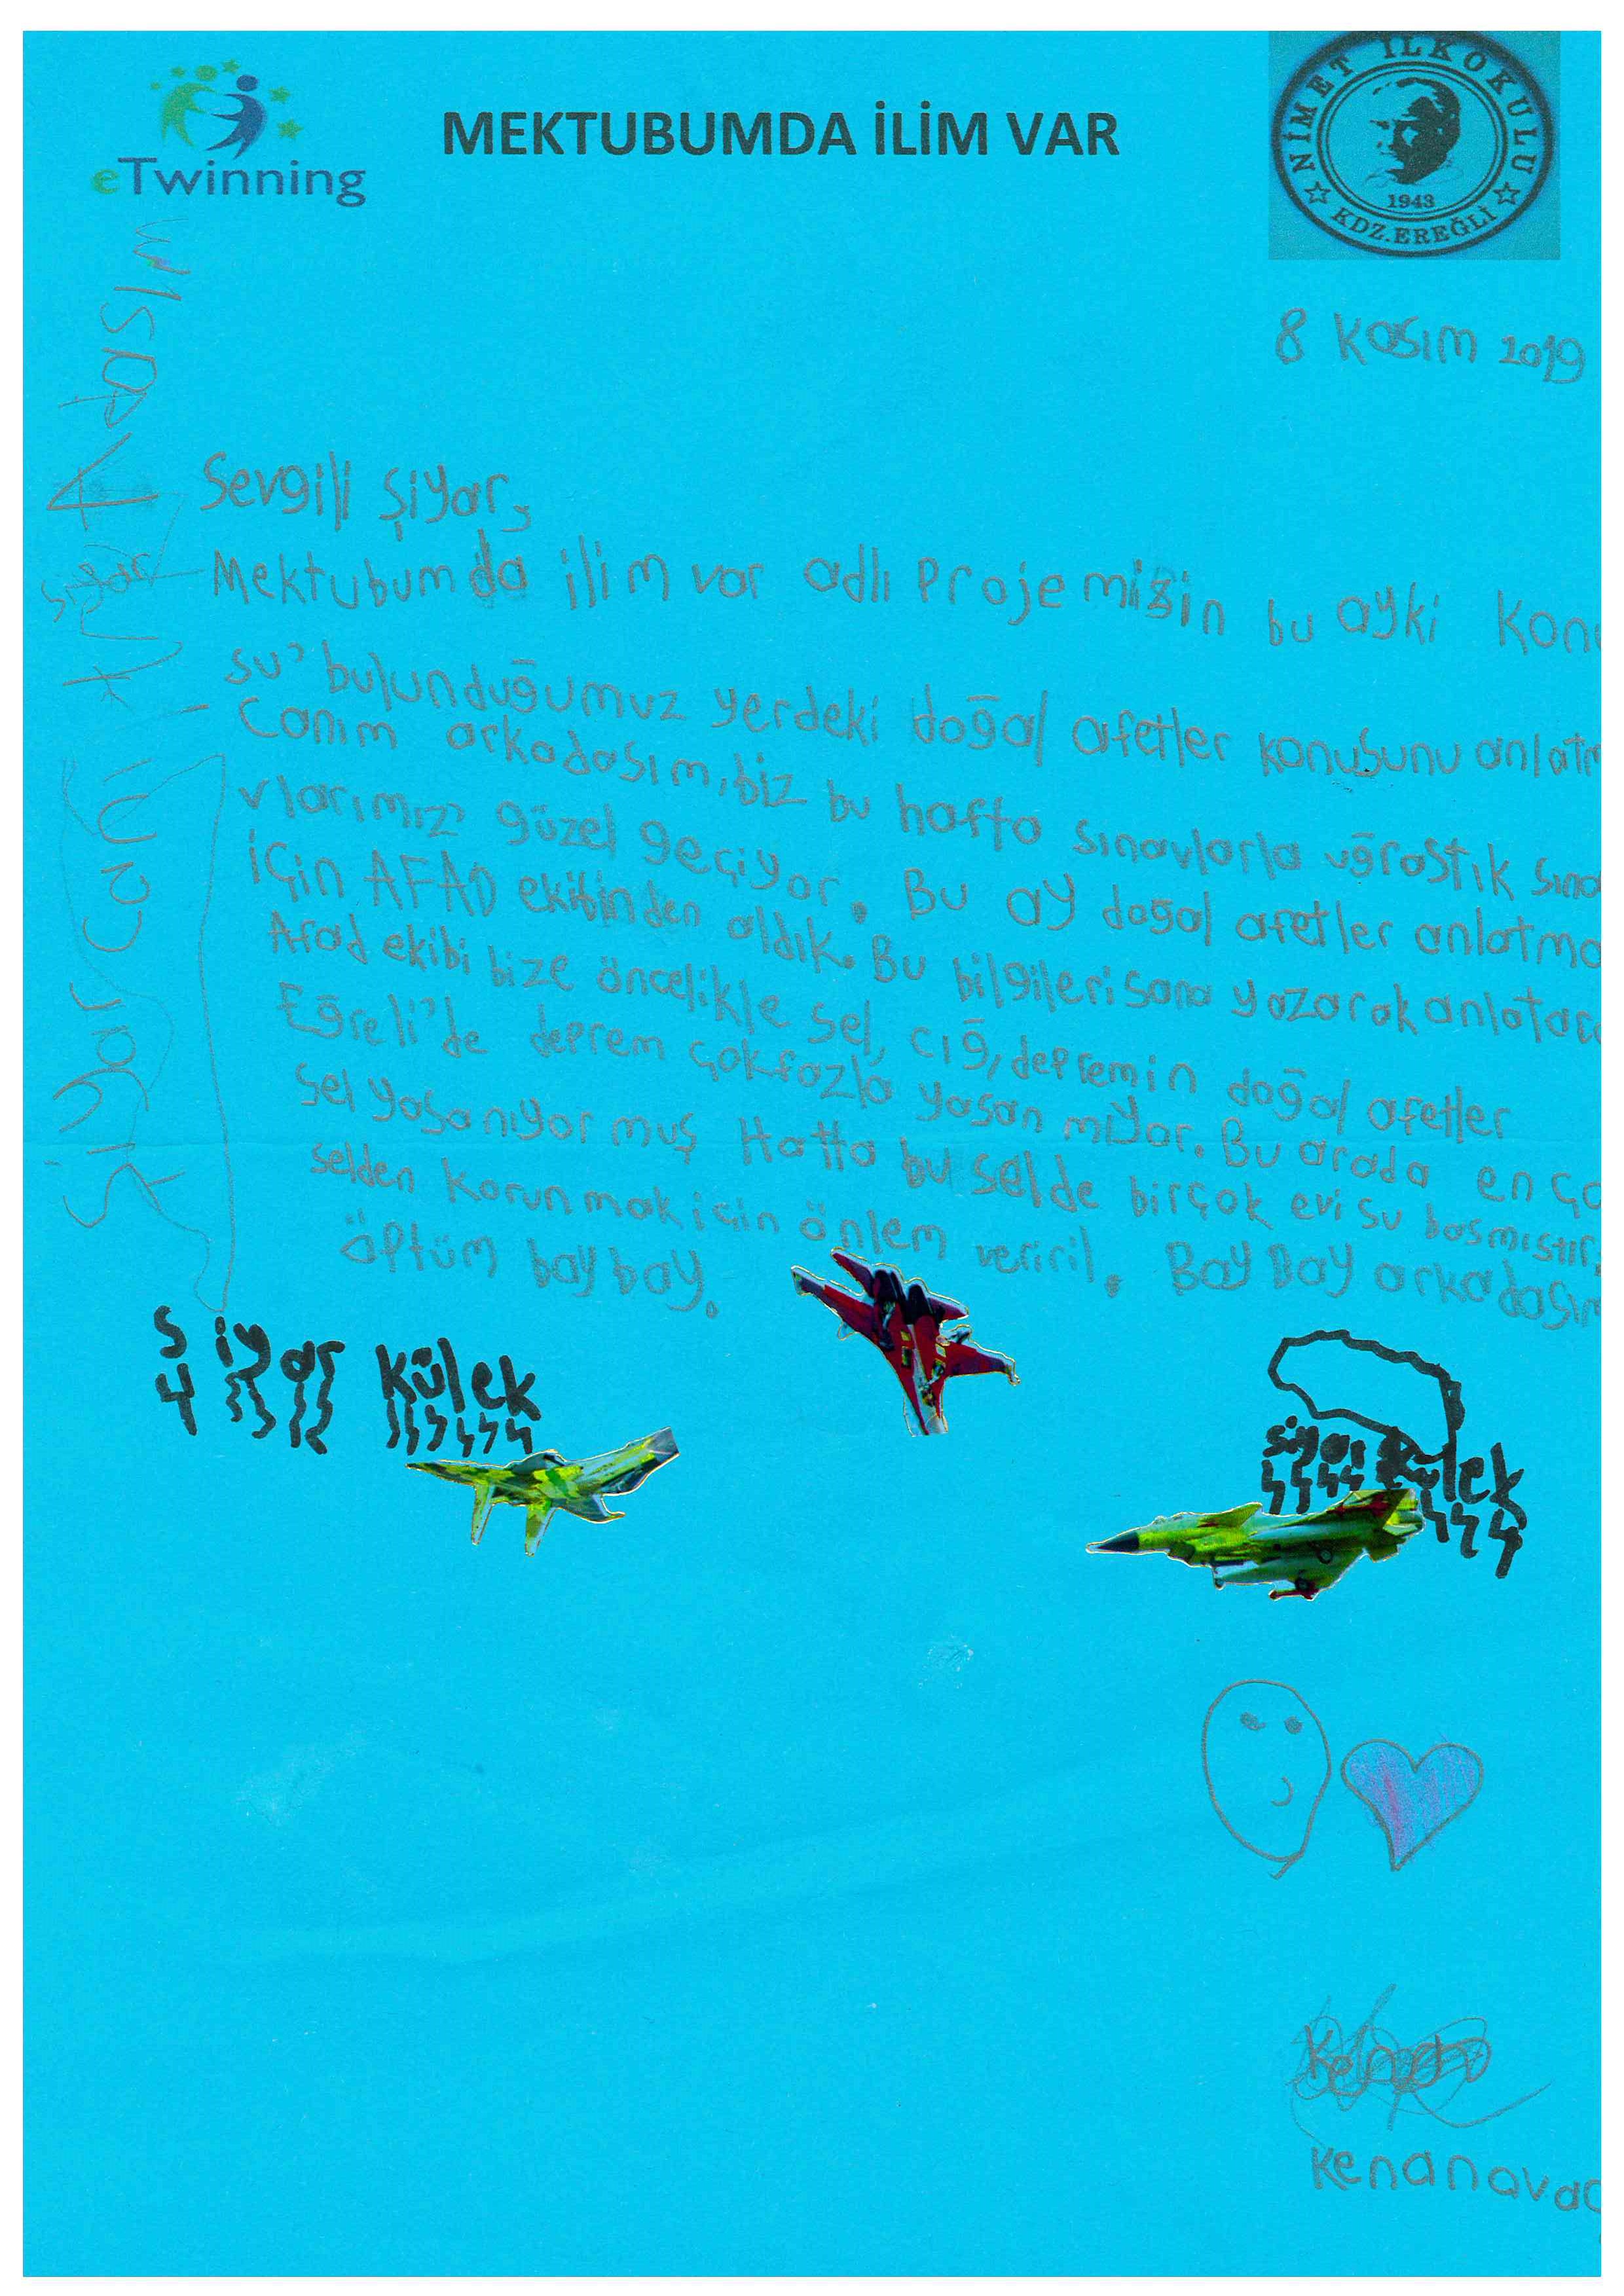 eTwinning
MEKTUBUMDA İLİM VAR
NİMET İLKOKULU
1943
KDZ.EREĞLİ
8 Kasım 2019
Sevgili Şiyar,
Mektubumda ilim var adlı Projemizin bu ayki Konu
su' bulunduğumuz yerdeki doğal afetler konusunu anlatm
Canım arkadasım, biz bu hafta sınavlarla uğrastık Sına
vlarımız' güzel geçiyor. Bu ay doğal afetler anlatma
için AFAD ekibinden aldık. Bu bilgileri sana yazarak anlatac
Afad ekibi bize öncelikle sel, cığ, depremin doğal afetler
Eğreli'de deprem çokfazla yasanmıyor. Bu arada en ço
sel yaşanıyormuş Hatta bu selde birçok evi su basmıstır.
selden korunmak için önlem veriril. Bay Bay arkadasım
öptüm bay bay.
siyar külek
siyar külek
Siyar Canı
Siyar
Kenan